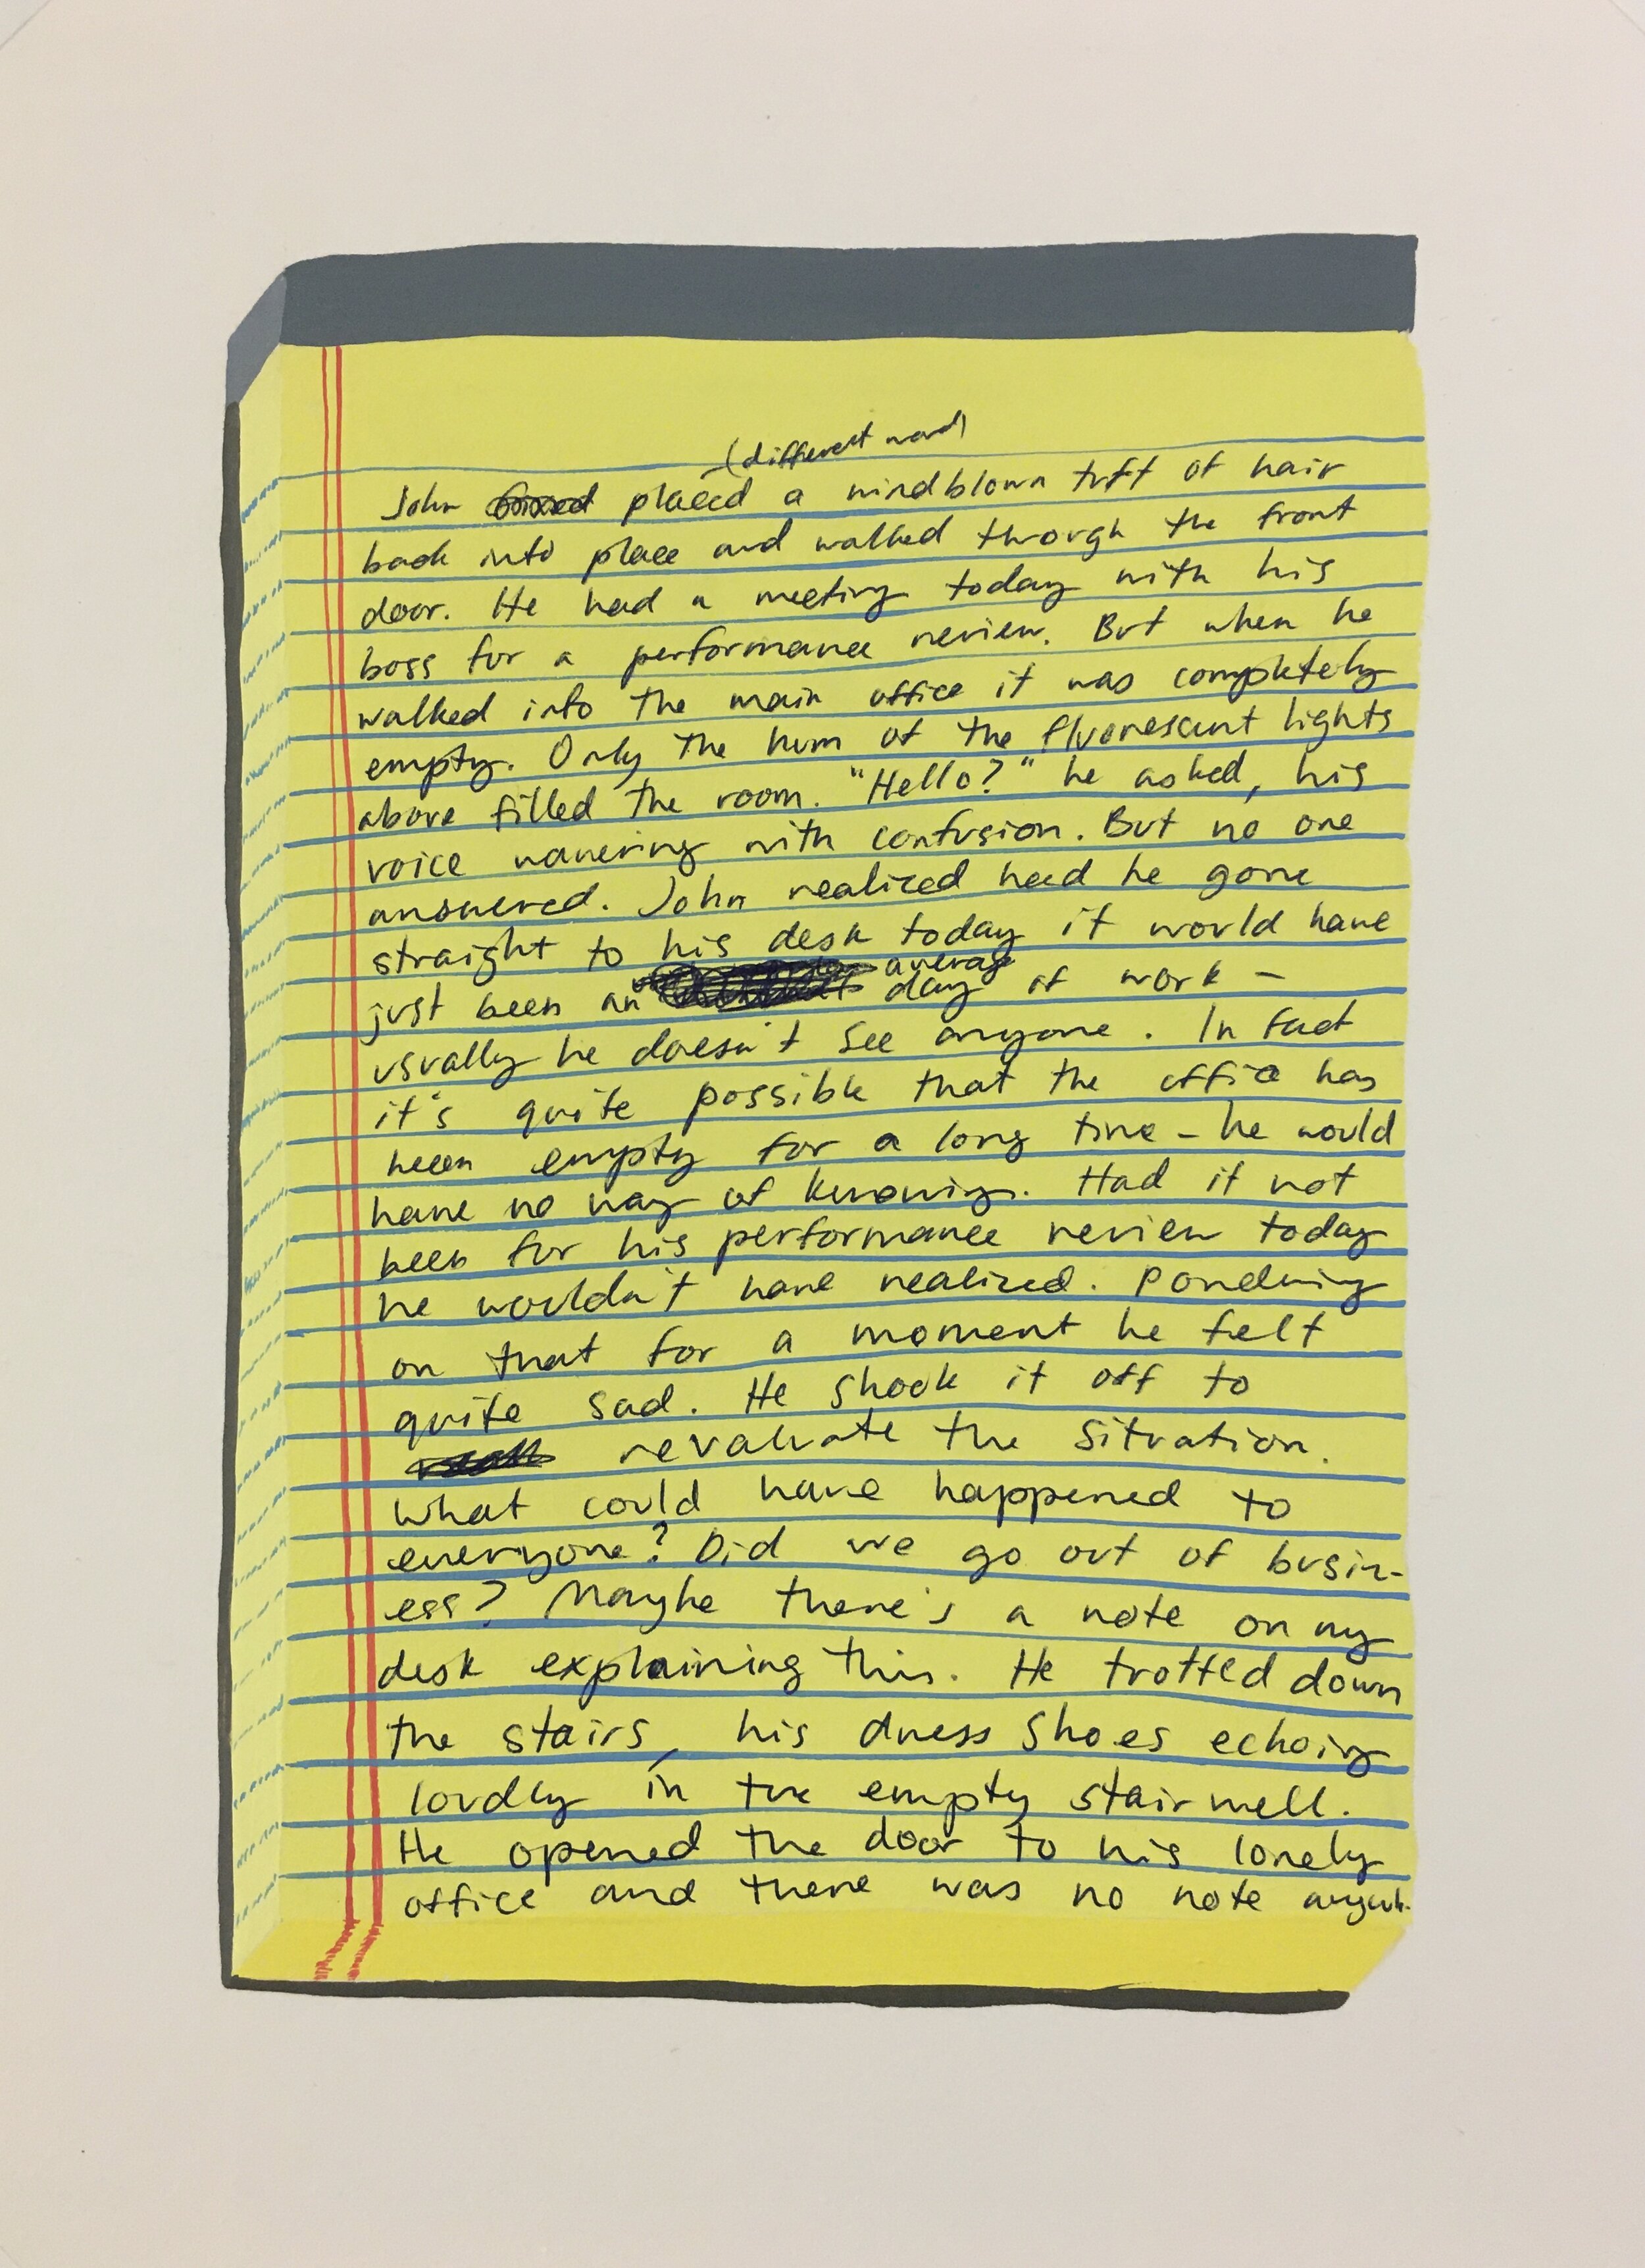 (different word)
John placed a windblown tuft of hair
back into place and walked through the front
door. He had a meeting today with his
boss for a performance review. But when he
walked into the main office it was completely
empty. Only the hum of the fluorescent lights
above filled the room. "Hello?" he asked, his
voice wavering with confusion. But no one
answered. John realized had he gone
straight to his desk today it would have
average
just been an day at work -
usually he doesn't see anyone. In fact
it's quite possible that the office has
been empty for a long time - he would
have no way of knowing. Had it not
been for his performance review today
he wouldn't have realized. Pondering
on that for a moment he felt
quite sad. He shook it off to
revaluate the situation.
What could have happened to
everyone? Did we go out of busin-
ess? Maybe there's a note on my
desk explaining this. He trotted down
the stairs, his dress shoes echoing
loudly in the empty stairwell.
He opened the door to his lonely
office and there was no note